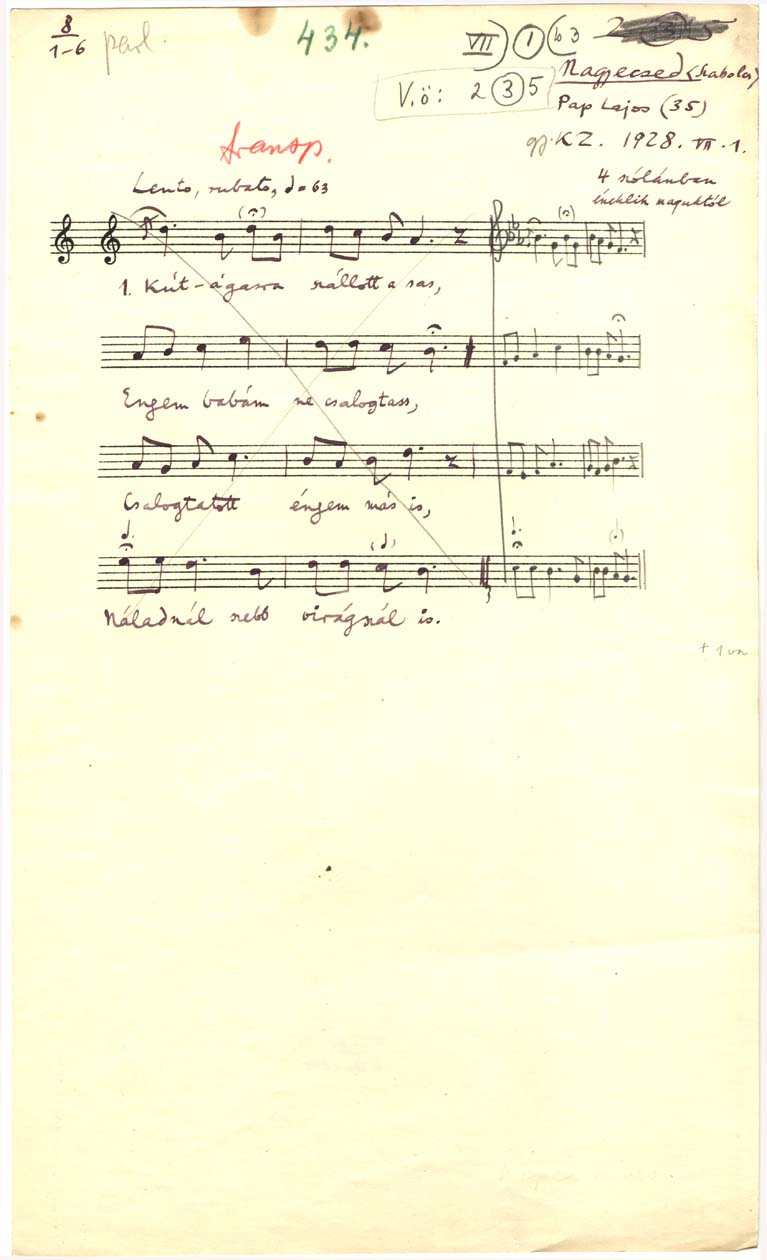 8
1-6
parl.
434.
VII) 1 (b3
V.ö: 2 3 5
Nagyecsed (Szabolcs)
Pap Lajos (35)
gy. KZ. 1928. VII. 1.
4 szólamban
éneklik maguktól
transp.
Lento, rubato, = 63
1. Kút-ágasra szállott a sas,
Engem babám ne csalogtass,
Csalogtatott éngem más is,
Náladnál szebb virágszál is.